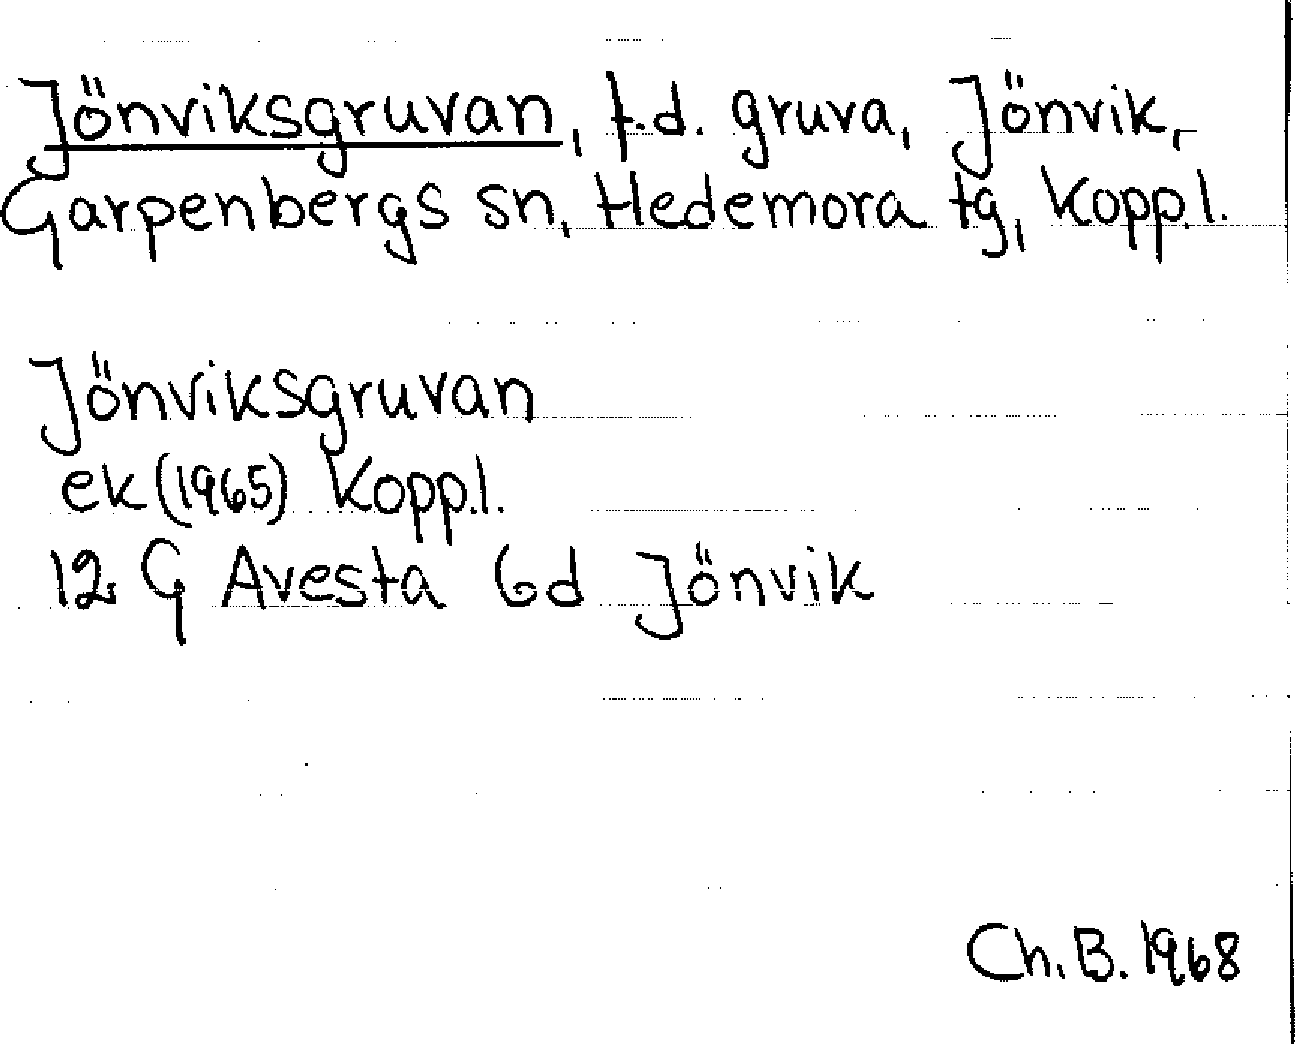 Jönviksgruvan, f.d. gruva, Jönvik,
Garpenbergs sn, Hedemora tg, Kopp.l.
Jönviksgruvan
ek (1965) Kopp.l.
12 G Avesta 6d Jönvik
Ch.B. 1968